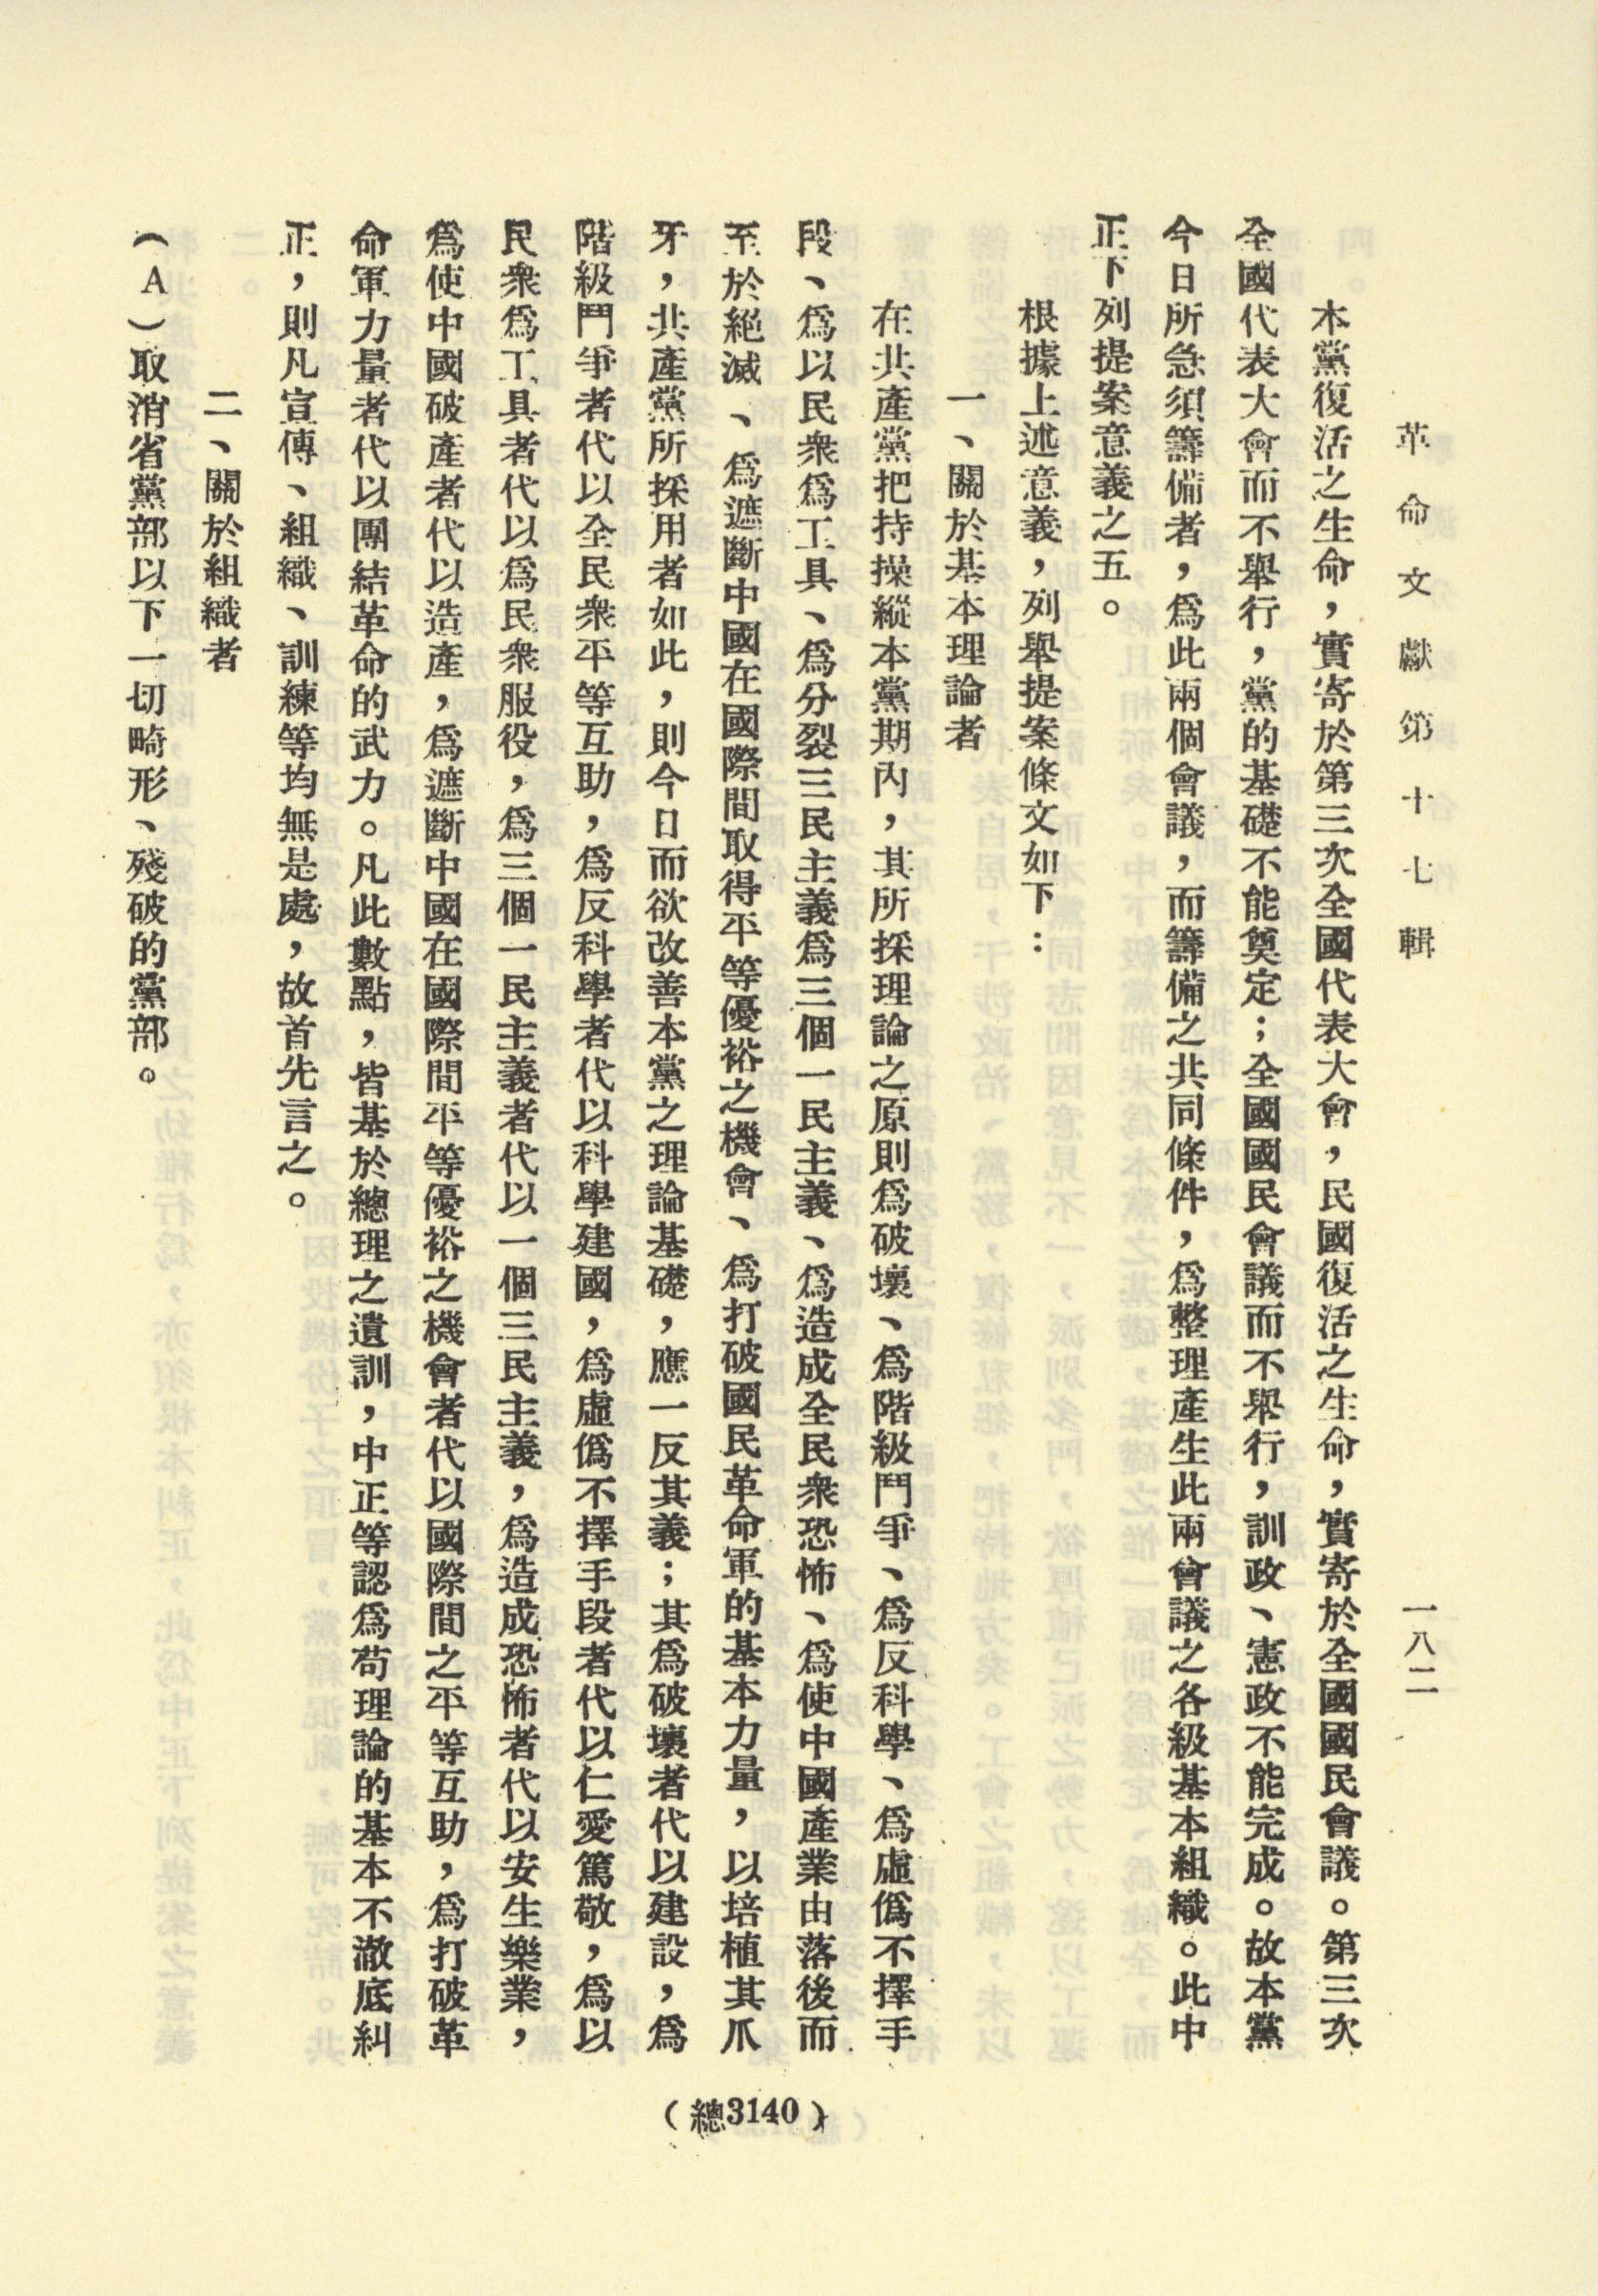 革命文獻第十七輯
一八二
本黨復活之生命，實寄於第三次全國代表大會，民國復活之生命，實寄於全國國民會議。第三次
全國代表大會而不舉行，黨的基礎不能奠定；全國國民會議而不舉行，訓政、憲政不能完成。故本黨
今日所急須籌備者，爲此兩個會議，而籌備之共同條件，爲整理產生此兩會議之各級基本組織。此中
正下列提案意義之五。
根據上述意義，列舉提案條文如下：
一、關於基本理論者
在共產黨把持操縱本黨期內，其所採理論之原則爲破壞、爲階級鬥爭、爲反科學、爲虛僞不擇手
段、爲以民衆爲工具、爲分裂三民主義爲三個一民主義、爲造成全民衆恐怖、爲使中國產業由落後而
至於絕滅、爲遮斷中國在國際間取得平等優裕之機會、爲打破國民革命軍的基本力量，以培植其爪
牙，共產黨所採用者如此，則今日而欲改善本黨之理論基礎，應一反其義；其爲破壞者代以建設，爲
階級鬥爭者代以全民衆平等互助，爲反科學者代以科學建國，爲虛僞不擇手段者代以仁愛篤敬，爲以
民衆爲工具者代以爲民衆服役，爲三個一民主義者代以一個三民主義，爲造成恐怖者代以安生樂業，
爲使中國破產者代以造產，爲遮斷中國在國際間平等優裕之機會者代以國際間之平等互助，爲打破革
命軍力量者代以團結革命的武力。凡此數點，皆基於總理之遺訓，中正等認爲苟理論的基本不澈底糾
正，則凡宣傳、組織、訓練等均無是處，故首先言之。
二、關於組織者
（A）取消省黨部以下一切畸形、殘破的黨部。
（總3140）